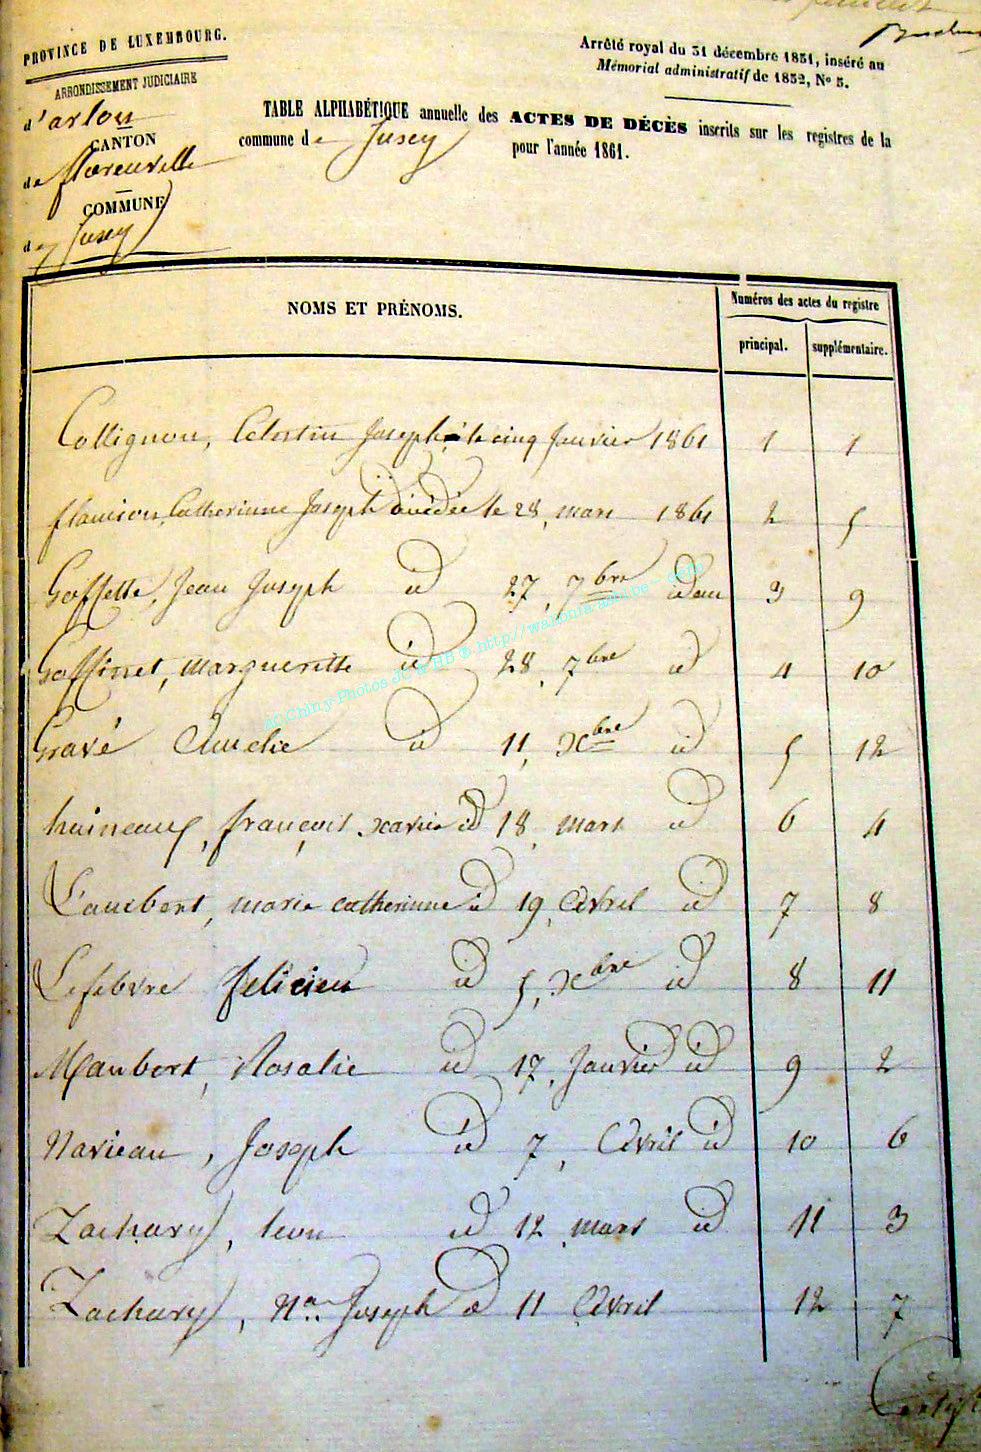 PROVINCE DE LUXEMBOURG.
ARRONDISSEMENT JUDICIAIRE
d'arlon
CANTON
de florenville
COMMUNE
de Jusey
Arrêté royal du 31 décembre 1851, inséré au
Mémorial administratif de 1852, No 5.
TABLE ALPHABÉTIQUE annuelle des ACTES DE DÉCÈS inscrits sur les registres de la
commune de Jusey pour l'année 1861.
NOMS ET PRÉNOMS.
Numéros des actes du registre
principal. supplémentaire.
Collignon, Celestin Joseph, le cinq Janvier 1861 1 1
flamion, Catherinne Joseph décédée le 28, mars 1861 2 5
Goffette, Jean Joseph id 27, 7bre id an 3 9
Goffinet, margueritte id 28, 7bre id 4 10
Gravé Amelie id 11, xbre id 5 12
huineaux, françois xavier id 18, mars id 6 4
Lambert, marie catherinne id 19, Avril id 7 8
Lefebvre felicien id 5, xbre id 8 11
Maubert, Rosalie id 17, Janvier id 9 2
Navieau, Joseph id 7, Avril id 10 6
Zachary, leon id 12, mars id 11 3
Zachary, Na.. Joseph id 11 Avril 12 7
AC Chiny Photos JC & HB ® http://wallonia.asbl.be - Geni